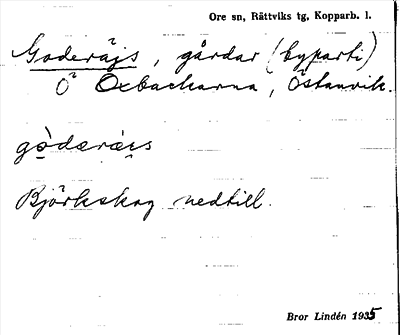 Ore sn, Rättviks tg, Kopparb. l.
Goderäjs, gårdar (byparti)
Ö Oxbackarna, Östanvik.
gòdæræi̯s
Björkskog nedtill.
Bror Lindén 1935